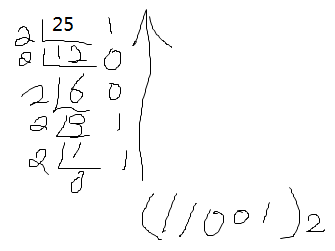 2 25 1
2 12 0
2 6 0
2 3 1
2 1 1
0
(11001)2